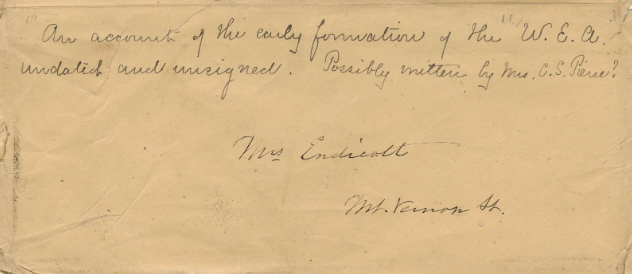 An account of the early formation of the "W. E. A."
undated and unsigned. Possibly written by Mrs. C. S. Peirce?
Mrs Endicott
Mt. Vernon St.